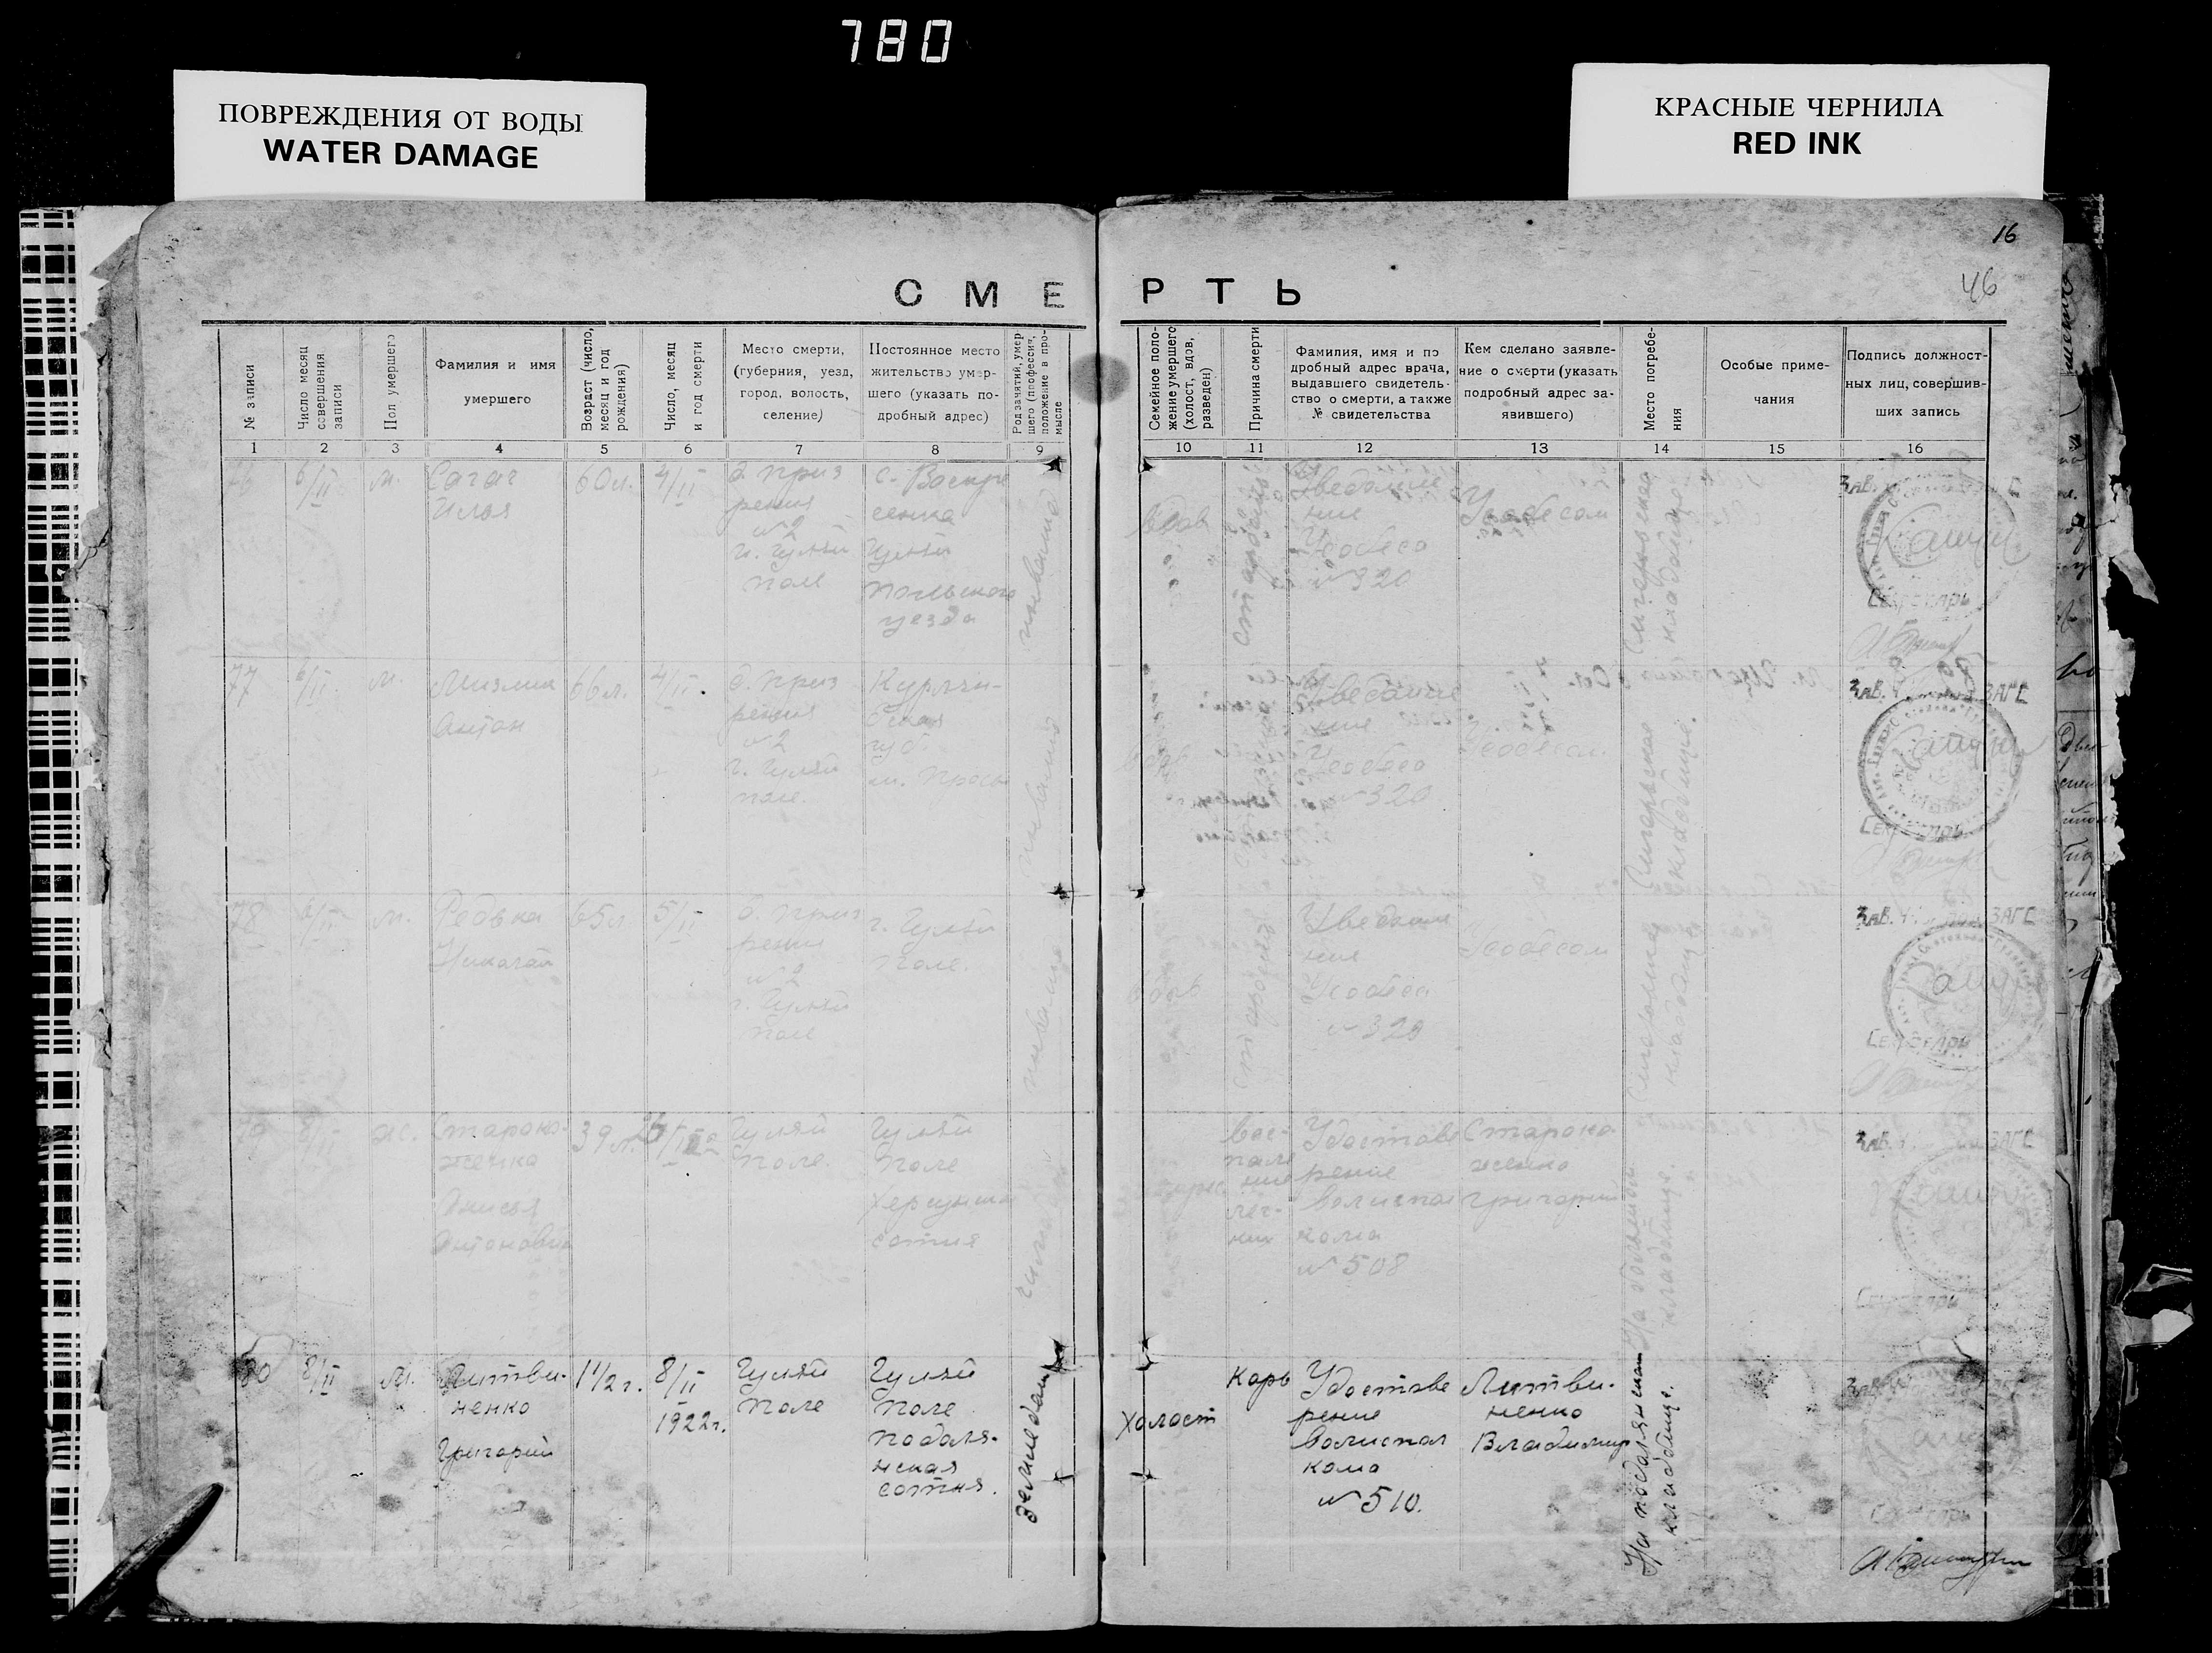 780
ПОВРЕЖДЕНИЯ ОТ ВОДЫ
WATER DAMAGE
КРАСНЫЕ ЧЕРНИЛА
RED INK
16
46
СМЕРТЬ
№ записи
Число месяц
совершения
записи
Пол умершего
Фамилия и имя
умершего
Возраст (число,
месяц и год
рождения)
Число, месяц
и год смерти
Место смерти,
(губерния, уезд,
город, волость,
селение)
Постоянное место
жительство умер-
шего (указать по-
дробный адрес)
Род занятий, умер-
шего (профессия,
положение в про-
мысле
Семейное поло-
жение умершего
(холост, вдов,
разведен)
Причина смерти
Фамилия, имя и по
дробный адрес врача,
выдавшего свидетель-
ство о смерти, а также
№ свидетельства
Кем сделано заявле-
ние о смерти (указать
подробный адрес за-
явившего)
Место погребе-
ния
Особые приме-
чания
Подпись должност-
ных лиц, совершив-
ших запись
1 2 3 4 5 6 7 8 9 10 11 12 13 14 15 16
76
6/II
м.
Сагач
Илья
60 л.
4/II
д. приз
рения
№2
г. Гуляй
поле
с. Воскре
сенка
Гуляй
польского
уезда
инвалид
вдов
старость
Уведомле
ние
Усобеса
№ 320
Усобесом
кладбище
Секретарь
77
6/II
м.
Антон
66 л.
4/II.
д. приз
рения
№2
г. Гуляй
поле.
Курлян-
дская
губ.
инвалид
вдов
Уведомле
ние
Усобеса
№ 320
Усобесом
кладбище.
Зав.
ЗАГС
Секретарь
78
6/II
м.
Редька
Николай
65 л.
5/II
д. приз
рения
№2
г. Гуляй
поле
г. Гуляй
поле.
инвалид
вдов
старость
Уведомле
ние
Усобеса
№ 320
Усобесом
кладбище
Зав.
ЗАГС
Секретарь
79
8/II
ж.
Староко-
женко
Анисья
Антоновна
39 л.
Гуляй
поле.
Гуляй
поле
Херсунская
сотня
вос-
пале
ние
лег-
ких
Удостове
рение
волиспол
кома
№ 508
Староко
женко
Григорий
кладбище.
Зав.
ЗАГС
Секретарь
80
8/II
м.
Литви-
ненко
Григорий
1 1/2 г.
8/II
1922 г.
Гуляй
поле
Гуляй
поле
подоля-
нская
сотня.
земледелец
холост
Корь
Удостове
рение
волиспол
кома
№ 510.
Литви-
ненко
Владимир
На подолянском
кладбище.
Зав.
Секретарь